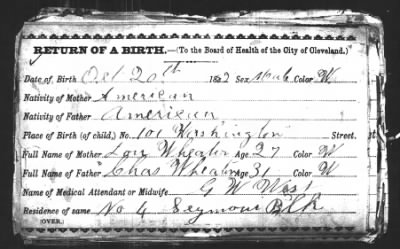 RETURN OF A BIRTH.—(To the Board of Health of the City of Cleveland.)
Date of Birth Oct 20th 1882 Sex Male Color W
Nativity of Mother American
Nativity of Father American
Place of Birth (of child,) No. 101 Washington Street.
Full Name of Mother Wheaton Age 27 Color W
Full Name of Father Chas Wheaton Age 31 Color W
Name of Medical Attendant or Midwife G W West
Residence of same No 4 Seymour Blk
(OVER.)